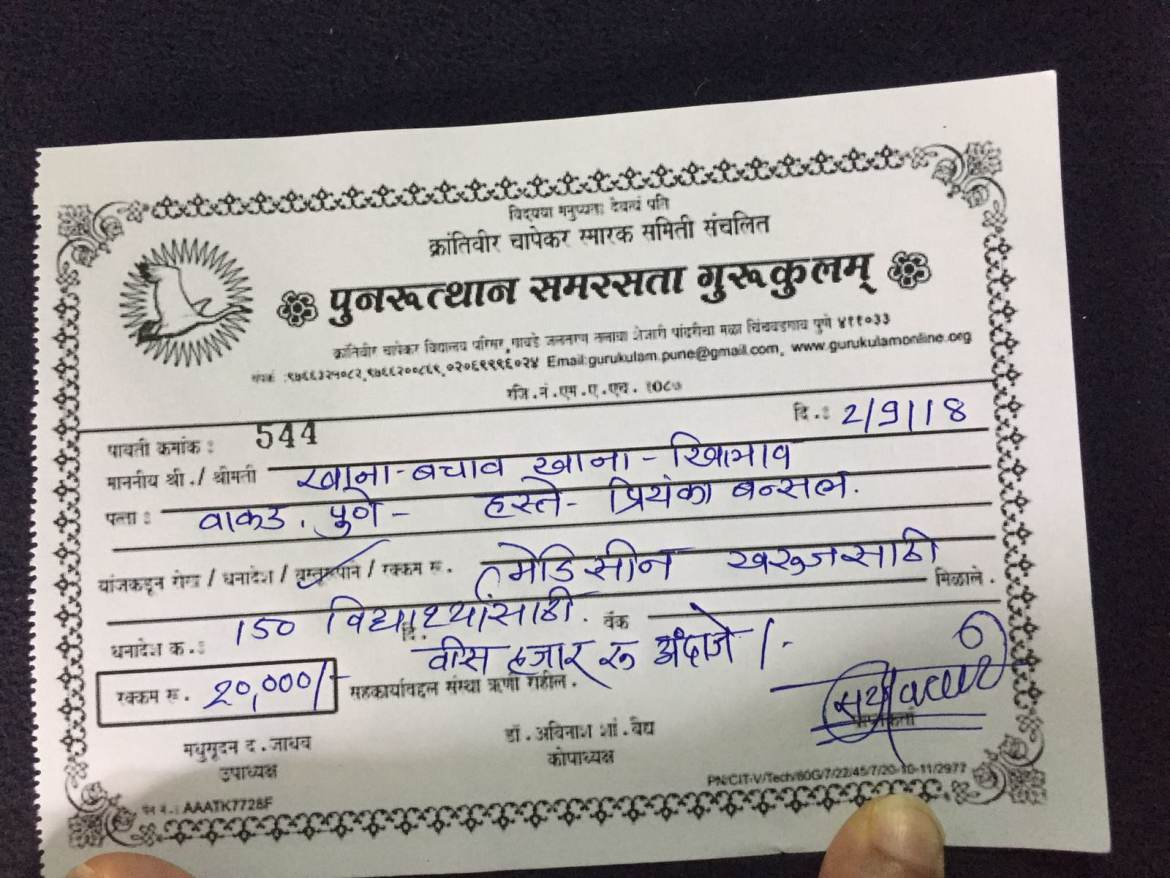 विद्यया मनुष्यताः देवत्वं पति
क्रांतिवीर चापेकर स्मारक समिती संचलित
पुनरूत्थान समरसता गुरूकुलम्
क्रांतिवीर चापेकर विद्यालय परिसर, गावडे जलतरण तलावा शेजारी पांढरीचा मळा चिंचवडगाव पुणे ४११०३३
संपर्क : ९७६६३२५०८२, ९७६६२००८६९, ०२०६९९९६०२४ Email:gurukulam.pune@gmail.com, www.gurukulamonline.org
रजि.नं.एम.ए.एच. १०८७
पावती कमांक : 544 दि.: 2/9/18
माननीय श्री./ श्रीमती खाना-बचाव खाना-खिलाव
पत्ता : वाकड, पुणे- हस्ते- प्रियंका बन्सल.
यांजकडून रोख / धनादेश / वस्तूरूपाने / रक्कम रू. मेडिसीन खरुजसाठी
150 विद्यार्थ्यांसाठी. मिळाले.
धनादेश क.: दि. बँक
वीस हजार रु अंदाजे /-
रक्कम रू. 20,000/- सहकार्याबद्दल संस्था ऋणी राहील.
मधुसूदन द. जाधव डॉ. अविनाश शां. वैद्य
उपाध्यक्ष कोषाध्यक्ष
पॅन नं.: AAATK7728F PN/CIT-V/Tech/80G/7/22/45/7/20-10-11/2977